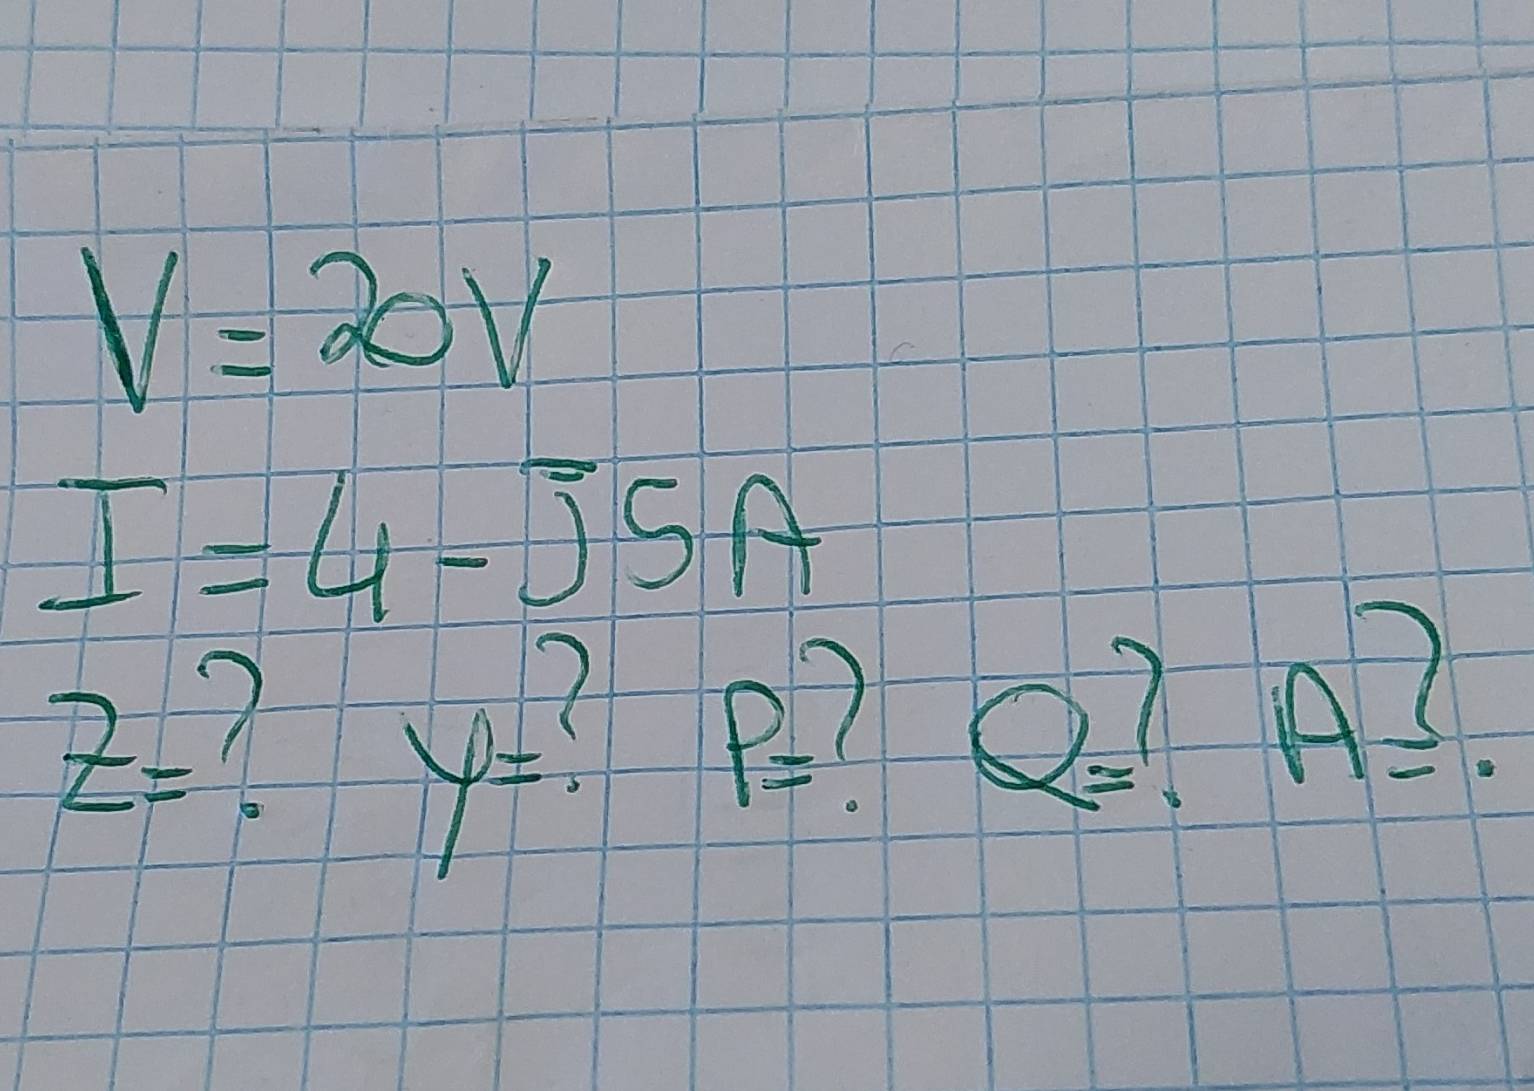 V = 20V
I = 4 - J5A
Z=? Y=? P=? Q=? A=?